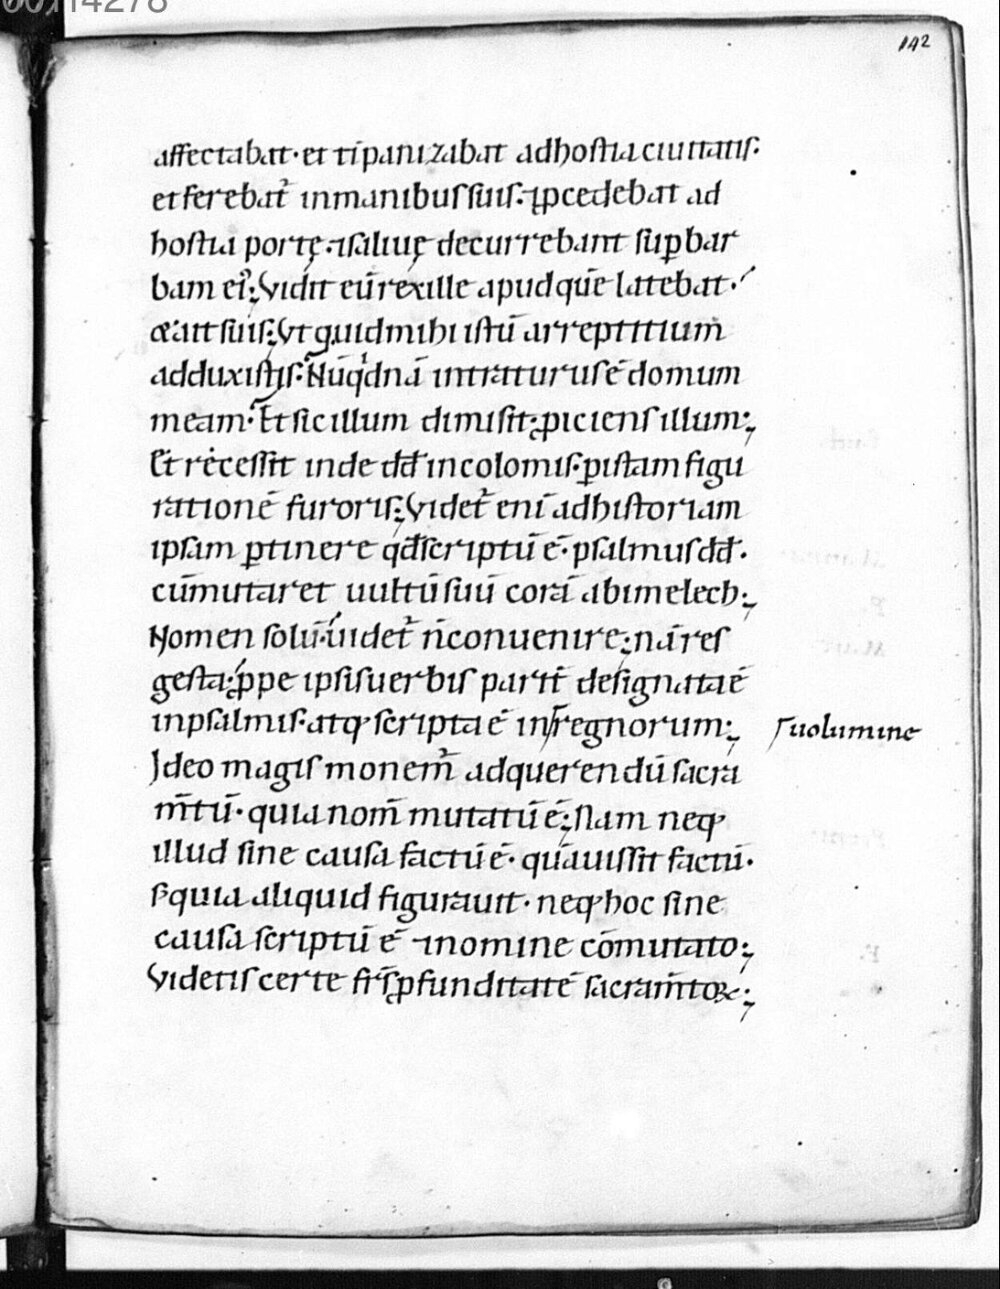 00114278
142
affectabat· et tipanizabat adhostia ciuitatis·
et ferebat᷑ inmanibus suis· ⁊ ꝓcedebat ad
hostia portę· ⁊ saliuę decurrebant sup̱ bar
bam ei᷑; Vidit eū rex ille apud quē latebat·
& ait suis; Vt quid mihi istū arreptitium
adduxistis· Nūqͥd nā intraturus ē domum
meam· Et sic illum dimisit; ꝓiciens illum;
Et recessit inde dd̄ incolomis· ꝑ istam figu
rationē furoris; Videt᷑ enī ad historiam
ipsam ꝑtinere qđ scriptū ē· psalmus dd̄·
cū mutaret uultū suū corā abimelech;
Nomen solū· uidet᷑ n̄ conuenire; nā res
gesta; ꝓppe ipsis uerbis parit᷑ designata ē
inpsalmis· atq; scripta ē in regnorum;
s uolumine
Ideo magis monem᷑ ad querendū sacra
m̄tū· quia nom̄ mutatū ē; Nam neq;
illud sine causa factū ē· qūauissit factū·
s̄ quia aliquid figurauit· neq; hoc sine
causa scriptū ē ⁊ nomine cōmutato;
Videtis certe fr̄s ꝓfunditatē sacram̄toꝝ;